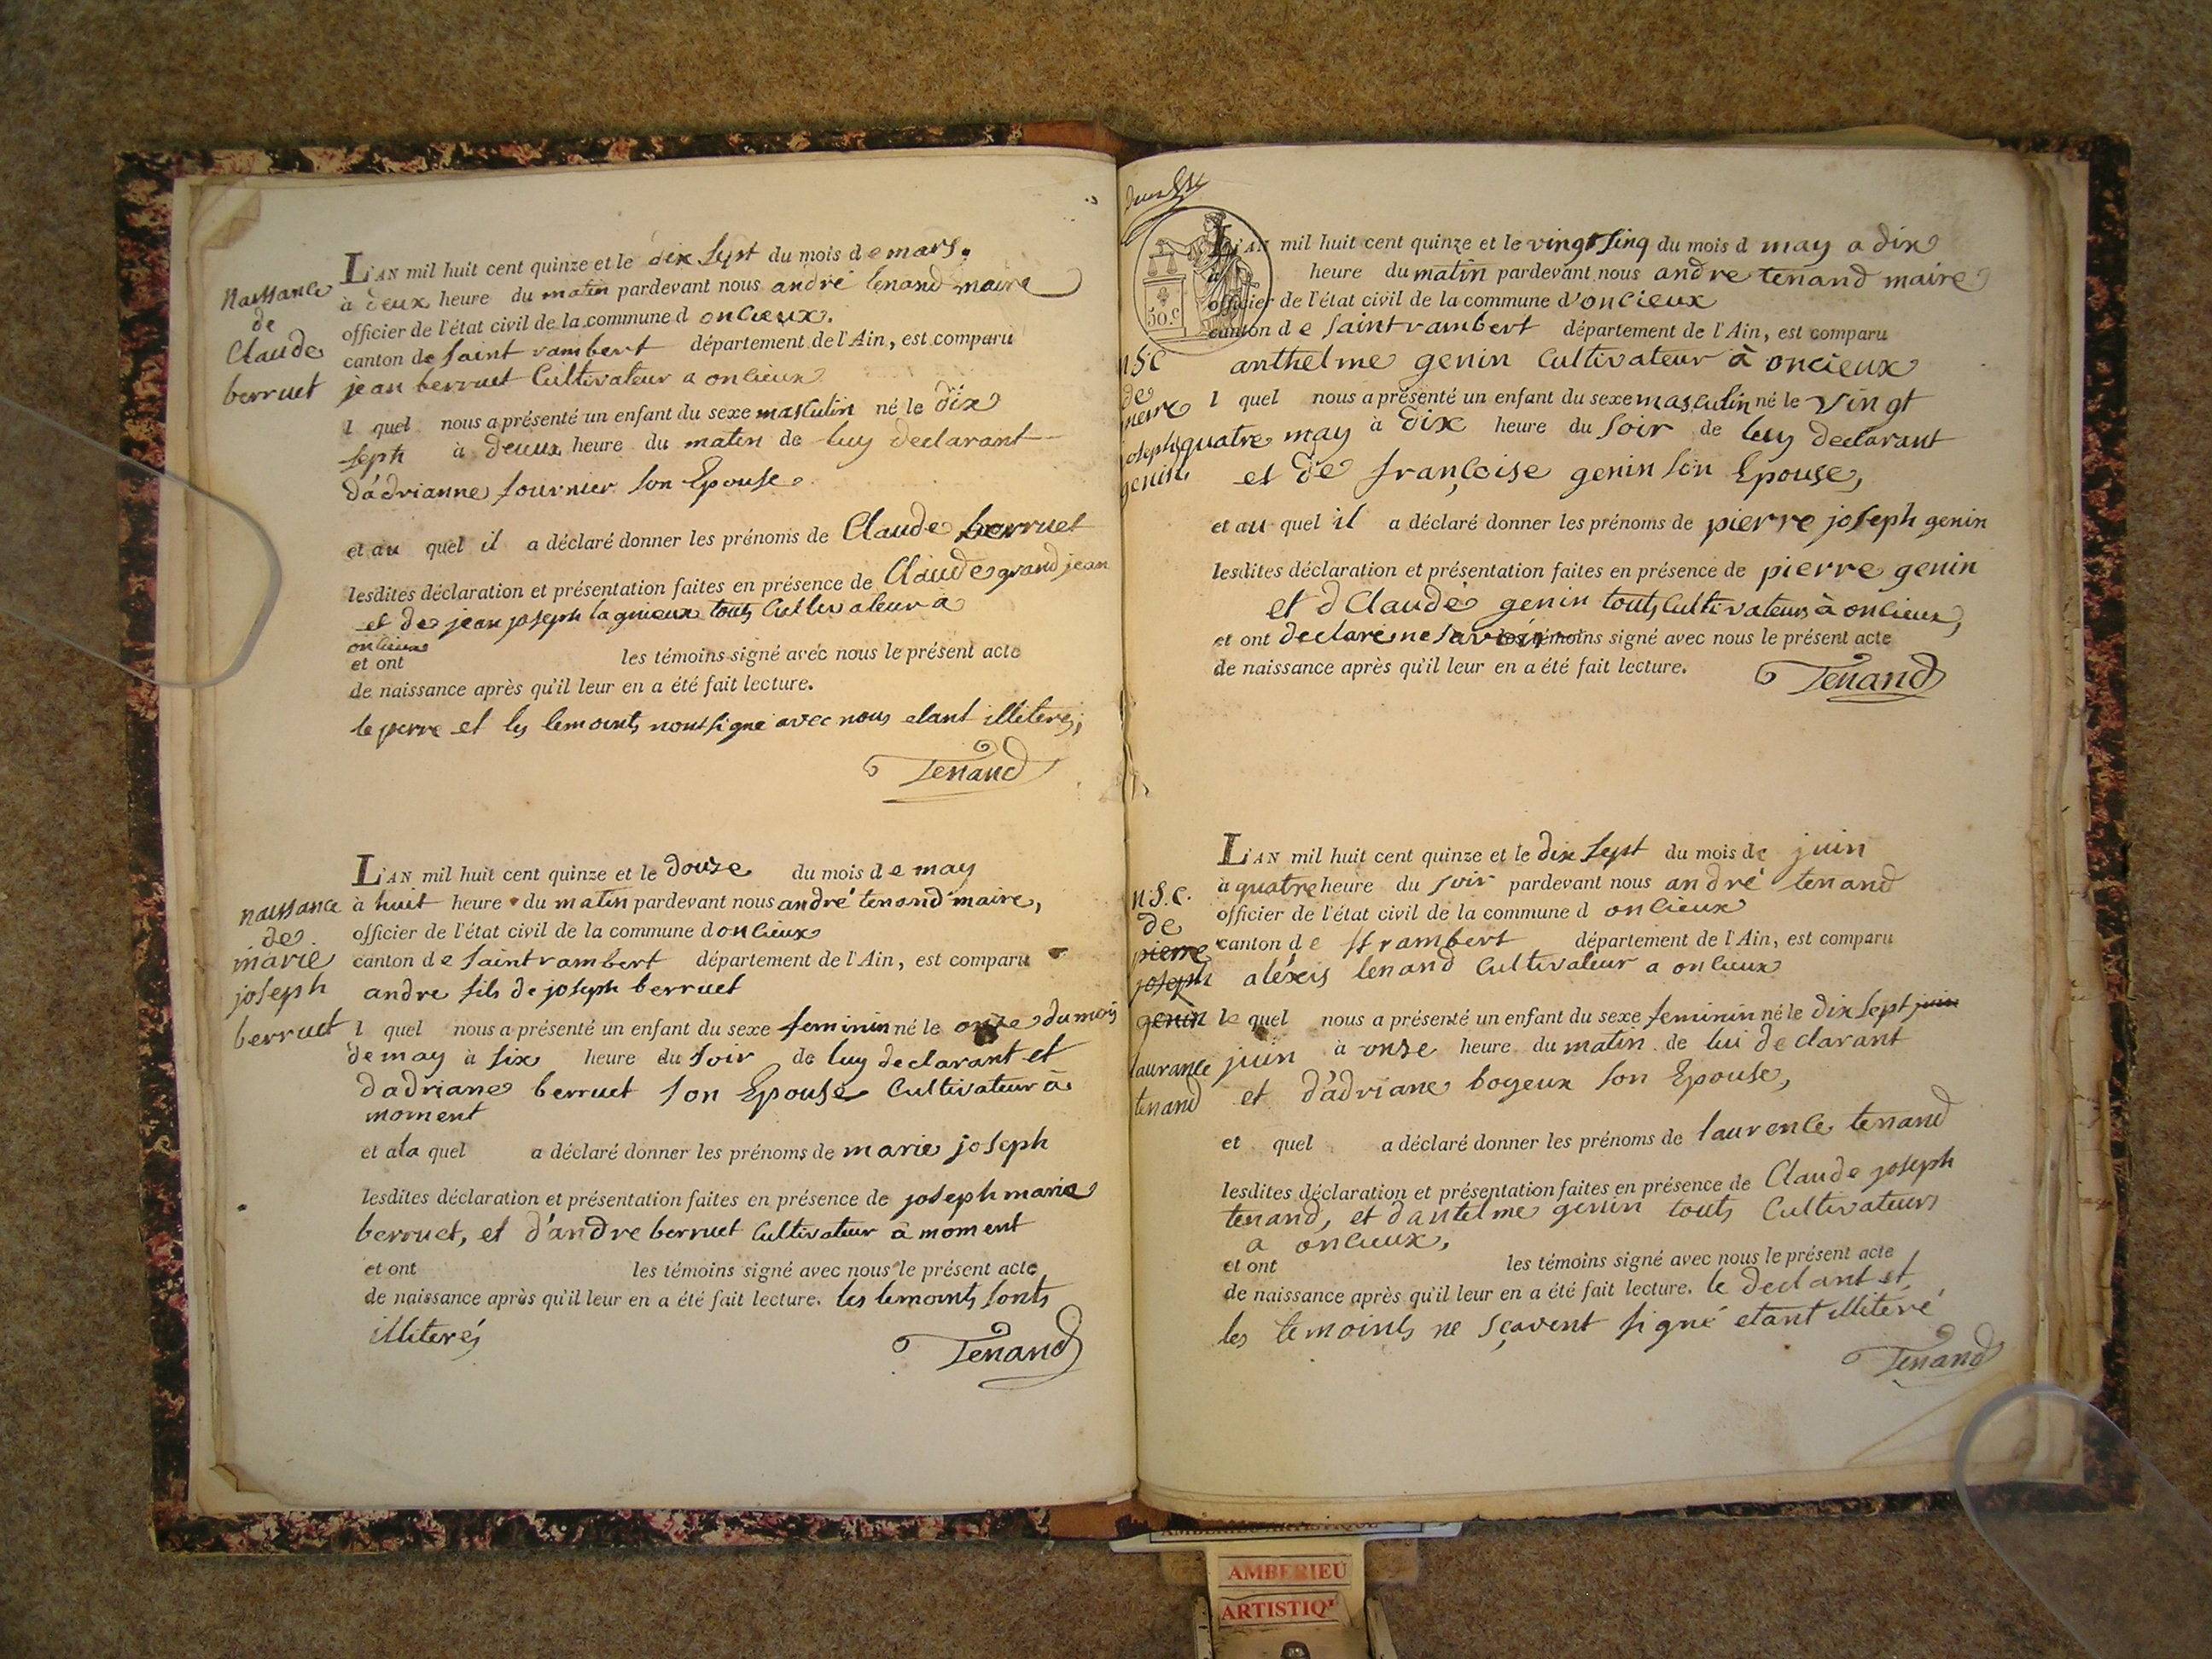 L'AN mil huit cent quinze et le dix sept du mois de mars.
à deux heure du matin pardevant nous andré tenand maire
officier de l'état civil de la commune d oncieux.
canton de saint rambert département de l'Ain, est comparu
jean berruet Cultivateur a oncieux
l quel nous a présenté un enfant du sexe masculin né le dix
seph à deux heure du matin de luy declarant
d'adrianne fournier son Epouse.
et au quel il a déclaré donner les prénoms de Claude berruet
lesdites déclaration et présentation faites en présence de Claude grand jean
et de jean joseph lagnieux touts Cultivateur a
oncieux
et ont les témoins signé avec nous le présent acte
de naissance après qu'il leur en a été fait lecture.
le perre et les temoints nont signé avec nous etant illiterés,
Tenand
Naissance
de
Claude
berruet
L'AN mil huit cent quinze et le douze du mois de may
à huit heure du matin pardevant nous andré tenand maire,
officier de l'état civil de la commune d oncieux
canton de saint rambert département de l'Ain, est comparu
andre fils de joseph berruet
l quel nous a présenté un enfant du sexe feminin né le onze du mois
de may à six heure du soir de luy declarant et
d'adriane berruet son Epouse Cultivateur à
moment
et ala quel a déclaré donner les prénoms de marie joseph
lesdites déclaration et présentation faites en présence de joseph marie
berruet, et d'andre berruet Cultivateur à moment
et ont les témoins signé avec nous le présent acte
de naissance après qu'il leur en a été fait lecture. les temoints sonts
illiterés
Tenand
naissance
de
marie
joseph
berruet
50.c
L'AN mil huit cent quinze et le vingt sinq du mois d may a dix
à heure du matin pardevant nous andre tenand maire
officier de l'état civil de la commune d'oncieux
canton de saint rambert département de l'Ain, est comparu
anthelme genin Cultivateur à oncieux
l quel nous a présenté un enfant du sexe masculin né le vingt
quatre may à dix heure du soir de luy declarant
et de françoise genin son Epouse,
et au quel il a déclaré donner les prénoms de pierre joseph genin
lesdites déclaration et présentation faites en présence de pierre genin
et d Claude genin touts Cultivateurs à oncieux,
et ont declaré ne savoir les témoins signé avec nous le présent acte
de naissance après qu'il leur en a été fait lecture.
Tenand
nsc
de
pierre
joseph
genin
L'AN mil huit cent quinze et le dix sept du mois de juin
à quatre heure du soir pardevant nous andré tenand
officier de l'état civil de la commune d oncieux
canton de st rambert département de l'Ain, est comparu
aléxis tenand Cultivateur a oncieux
le quel nous a présenté un enfant du sexe feminin né le dix sept juin
juin à onze heure du matin de lui declarant
et d'adriane bogeux son Epouse,
et quel a déclaré donner les prénoms de laurence tenand
lesdites déclaration et présentation faites en présence de Claude joseph
tenand, et d'antelme genin touts Cultivateurs
a oncieux,
et ont les témoins signé avec nous le présent acte
de naissance après qu'il leur en a été fait lecture. le declant et
les temoints ne sçavent signé etant illitéré
Tenand
n.s.c.
de
pierre
joseph
genin
laurance
tenand
AMBERIEU ARTISTIQUE
AMBERIEU
ARTISTIQ'